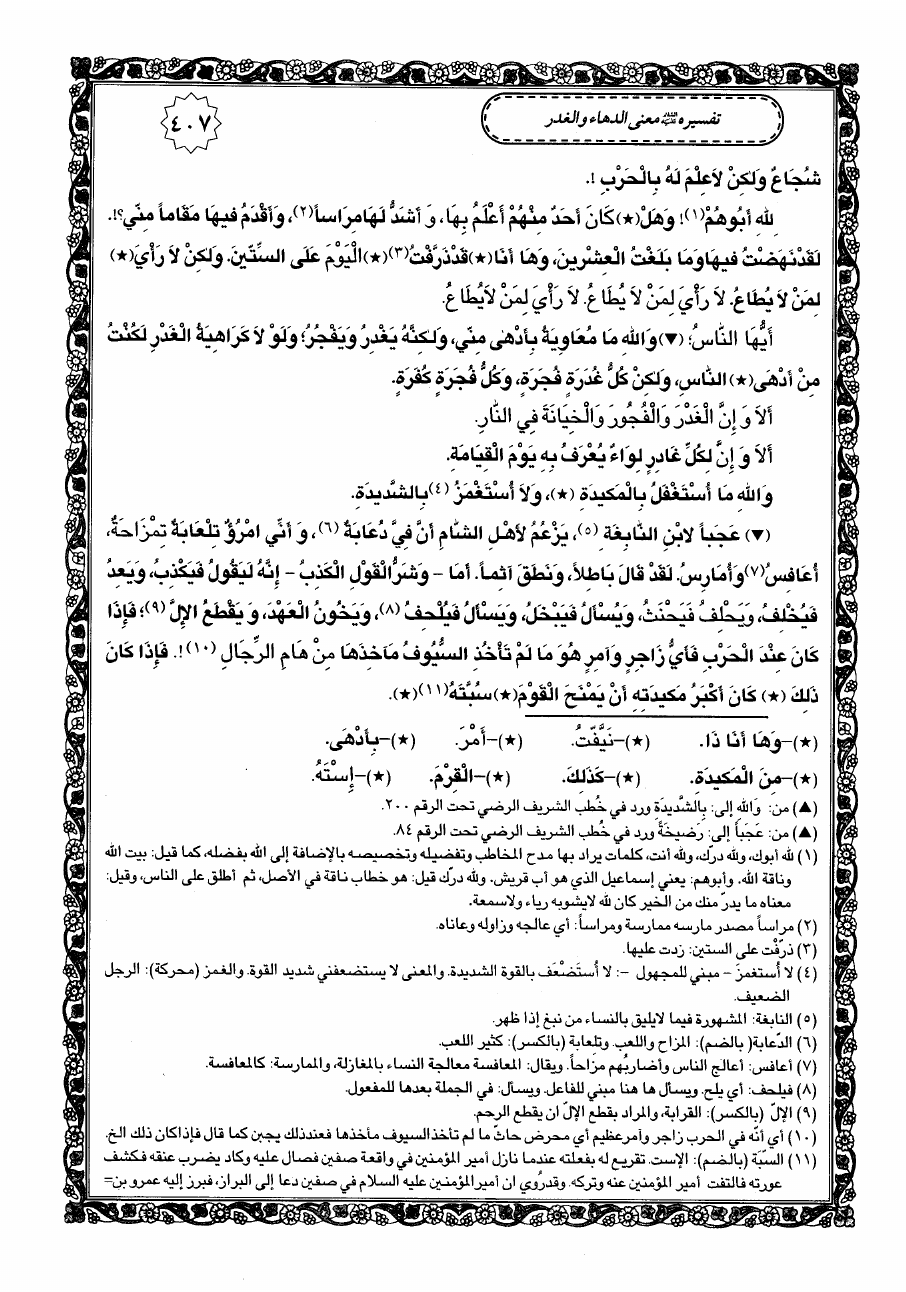 تفسيره عليه السلام معنى الدهاء والغدر
٤٠٧
شُجَاعٌ وَلٰكِنْ لاَعِلْمَ لَهُ بِالْحَرْبِ !.
لِلّٰهِ أَبُوهُمْ(١)! وَهَلْ(★)كَانَ أَحَدٌ مِنْهُمْ أَعْلَمُ بِهَا، وَ أَشَدُّ لَهَامِرَاساً(٢)، وَأَقْدَمُ فيهَا مَقَاماً مِنّي؟!.
لَقَدْنَهَضْتُ فيهَاوَمَا بَلَغْتُ الْعِشْرينَ، وَهَا أَنَا(★)قَدْذَرَّفْتُ(٣)(★)الْيَوْمَ عَلَى السِّتّينَ. وَلٰكِنْ لاَ رَأْيَ(★)
لِمَنْ لاَ يُطَاعُ. لاَ رَأْيَ لِمَنْ لاَ يُطَاعُ. لاَ رَأْيَ لِمَنْ لاَيُطَاعُ.
أَيُّهَا النَّاسُ؛ (▼)وَاللهِ مَا مُعَاوِيَةُ بِأَدْهٰى مِنّي، وَلٰكِنَّهُ يَغْدِرُ وَيَفْجُرُ؛ وَلَوْ لاَ كَرَاهِيَةُ الْغَدْرِ لَكُنْتُ
مِنْ أَدْهَى(★)النَّاسِ، وَلٰكِنْ كُلُّ غُدَرَةٍ فُجَرَةٍ، وَكُلُّ فُجَرَةٍ كُفَرَةٍ.
أَلاَ وَ إِنَّ الْغَدْرَ وَالْفُجُورَ وَالْخِيَانَةَ فِي النَّارِ.
أَلاَ وَ إِنَّ لِكُلِّ غَادِرٍ لِوَاءً يُعْرَفُ بِهِ يَوْمَ الْقِيَامَةِ.
وَاللهِ مَا أُسْتَغْفَلُ بِالْمَكيدَةِ (★)، وَلاَ أُسْتَغْمَزُ (٤)بِالشَّديدَةِ.
(▼) عَجَباً لاِبْنِ النَّابِغَةِ (٥)، يَزْعُمُ لأَهْلِ الشَّامِ أَنَّ فِيَّ دُعَابَةً (٦)، وَ أَنِّي امْرُؤٌ تِلْعَابَةٌ تِمْزَاحَةٌ،
أُعَافِسُ(٧)وَأُمَارِسُ. لَقَدْ قَالَ بَاطِلاً، وَنَطَقَ آثِماً. أَمَا – وَشَرُّالْقَوْلِ الْكَذِبُ – إِنَّهُ لَيَقُولُ فَيَكْذِبُ، وَيَعِدُ
فَيُخْلِفُ، وَيَحْلِفُ فَيَحْنَثُ، وَيُسْأَلُ فَيَبْخَلُ، وَيَسْأَلُ فَيُلْحِفُ (٨)، وَيَخُونُ الْعَهْدَ، وَ يَقْطَعُ الإِلَّ (٩)؛ فَإِذَا
كَانَ عِنْدَ الْحَرْبِ فَأَيُّ زَاجِرٍ وَآمِرٍ هُوَ مَا لَمْ تَأْخُذِ السُّيُوفُ مَآخِذَهَا مِنْ هَامِ الرِّجَالِ (١٠)!. فَإِذَا كَانَ
ذٰلِكَ (★) كَانَ أَكْبَرُ مَكيدَتِهِ أَنْ يَمْنَحَ الْقَوْمَ(★)سُبَّتَهُ(١١)(★).
(★)–وَهَا أَنَا ذَا. (★)–نَيَّفْتُ. (★)–أَمْرَ. (★)–بِأَدْهٰى.
(★)–مِنَ الْمَكيدَةِ. (★)–كَذٰلِكَ. (★)–الْقِرْمَ. (★)–إِسْتَهُ.
(▲) من: وَاللهِ إلى: بِالشَّديدَةِ ورد في خُطب الشريف الرضي تحت الرقم ٢٠٠.
(▲) من: عَجَباً إلى: رَضيخَةً ورد في خُطب الشريف الرضي تحت الرقم ٨٤.
(١) لله أبوك، ولله درّك، ولله أنت، كلمات يراد بها مدح المخاطب وتفضيله وتخصيصه بالإضافة إلى الله بفضله، كما قيل: بيت الله
وناقة الله. وأبوهم: يعني إسماعيل الذي هو أب قريش. ولله درّك قيل: هو خطاب ناقة في الأصل، ثم أطلق على الناس، وقيل:
معناه ما يدرّ منك من الخير كان لله لايشوبه رياء ولاسمعة.
(٢) مراساً مصدر مارسه ممارسة ومراساً: أي عالجه وزاوله وعاناه.
(٣) ذرّفْت على الستين: زدت عليها.
(٤) لا أُستغمزَ – مبني للمجهول –: لا أُستَضْعَف بالقوة الشديدة. والمعنى لا يستضعفني شديد القوة. والغمز (محركة): الرجل
الضعيف.
(٥) النابغة: المشهورة فيما لايليق بالنساء من نبغ إذا ظهر.
(٦) الدّعابة( بالضم): المزاح واللعب. وتلعابة (بالكسر): كثير اللعب.
(٧) أعافس: أعالج الناس وأضاربُهم مزاحاً. ويقال: المعافسة معالجة النساء بالمغازلة، والممارسة: كالمعافسة.
(٨) فيلحف: أي يلح. ويسأل ها هنا مبني للفاعل. ويسأل: في الجملة بعدها للمفعول.
(٩) الإلّ (بالكسر): القرابة، والمراد بقطع الإلّ ان يقطع الرحم.
(١٠) أي أنّه في الحرب زاجر وآمرعظيم أي محرض حاثّ ما لم تأخذالسيوف مآخذها فعندذلك يجبن كما قال فإذاكان ذلك الخ.
(١١) السبّة (بالضم): الإست. تقريع له بفعلته عندما نازل أمير المؤمنين في واقعة صفين فصال عليه وكاد يضرب عنقه فكشف
عورته فالتفت أمير المؤمنين عنه وتركه. وقدرُوي ان أمير المؤمنين عليه السلام في صفين دعا إلى البراز، فبرز إليه عمرو بن=